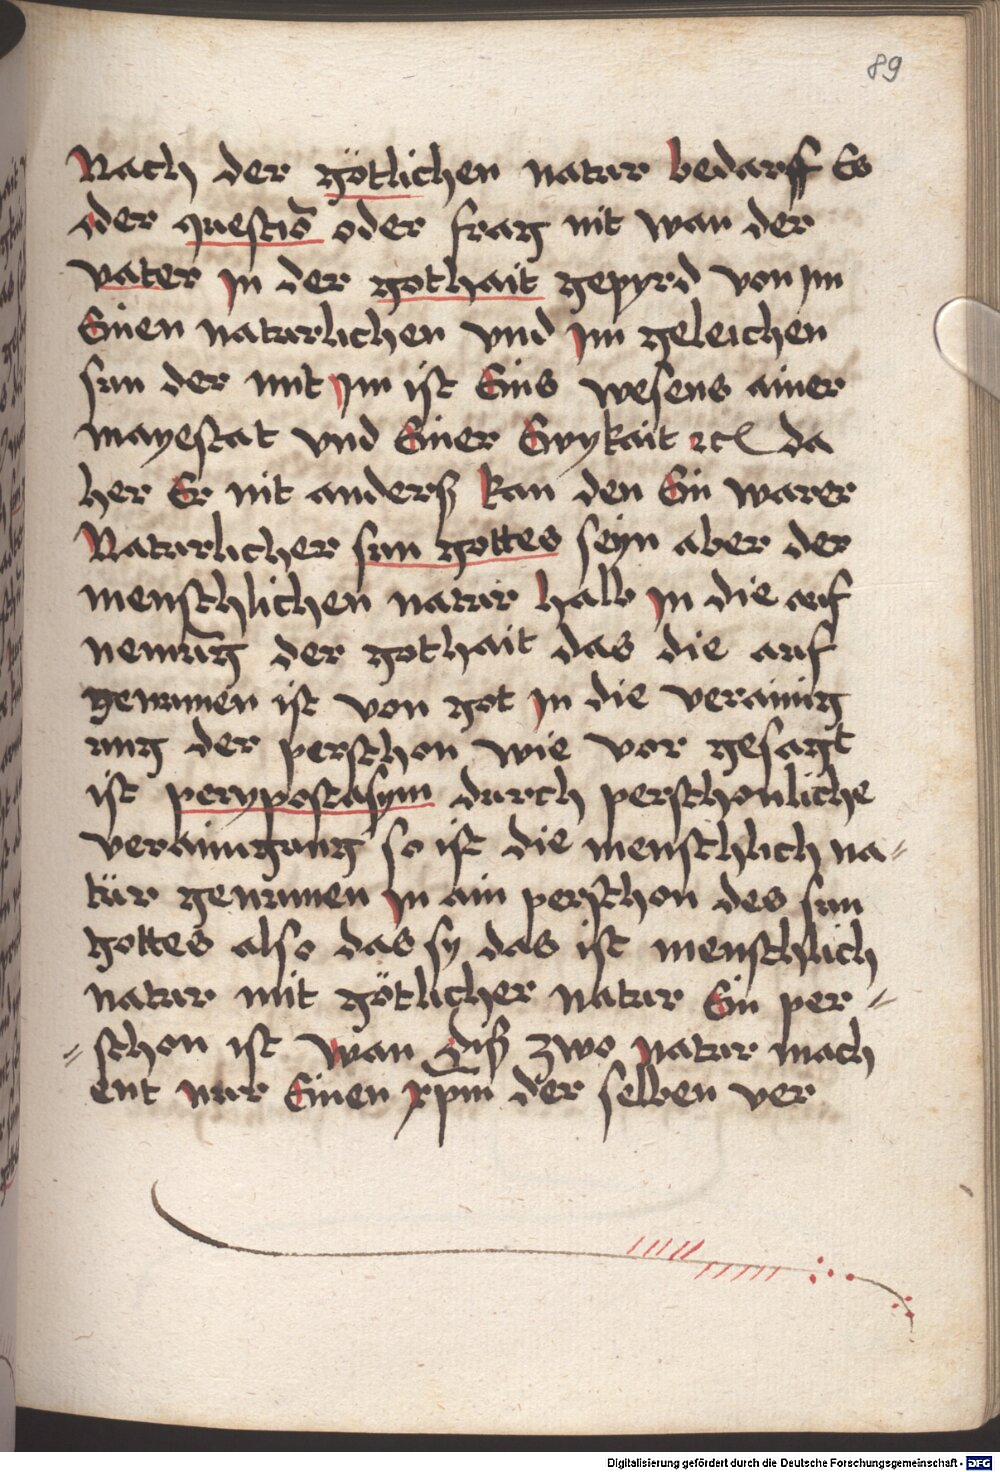 89
Nach der götlichen natur bedarff Es
der questiō oder frag nit wan der
vater jn der gothait gepyrd von jm
Einen naturlichen vnd jm geleichen
sun der mit jm ist Eins wesens ainer
mayestat vnd Einer Ewykait ꝛc da
her Er nit anderß kan den Ein warer
Naturlicher sun gottes seyn aber der
menschlichen natur halb jn die auf
nemūg der gothait das die auf
genumen ist von got jn die verainig
ung der perschon wie vor gesagt
ist perypostasym durch perschonliche
verainigung so ist die menschlich na⸗
tür genumen jn ain perschon des sun
gottes also das sy das ist menschlich
natur mit götlicher natur Ein per⸗
⸗schon ist wan diß zwo natur mach
ent nur Einen xpm der selben ver
Digitalisierung gefördert durch die Deutsche Forschungsgemeinschaft - DFG